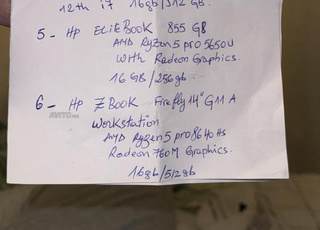 12th i7 16gb/512 GB.
5 - HP EliteBook 855 G8
AMD Ryzen 5 pro 5650U
With Radeon Graphics.
16 GB/256gb.
6 - HP ZBook Firefly 14" G11 A
Workstation
AMD Ryzen 5 pro 8640HS
Radeon 760M Graphics.
16gb/512gb